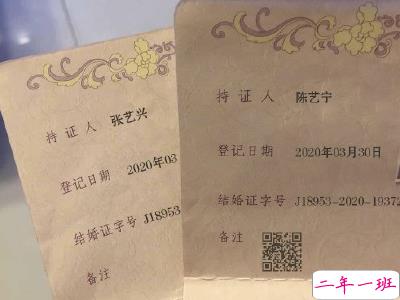 持证人 张艺兴
登记日期 2020年03
结婚证字号 J18953
备注
持证人 陈艺宁
登记日期 2020年03月30日
结婚证字号 J18953-2020-19372
备注
二年一班